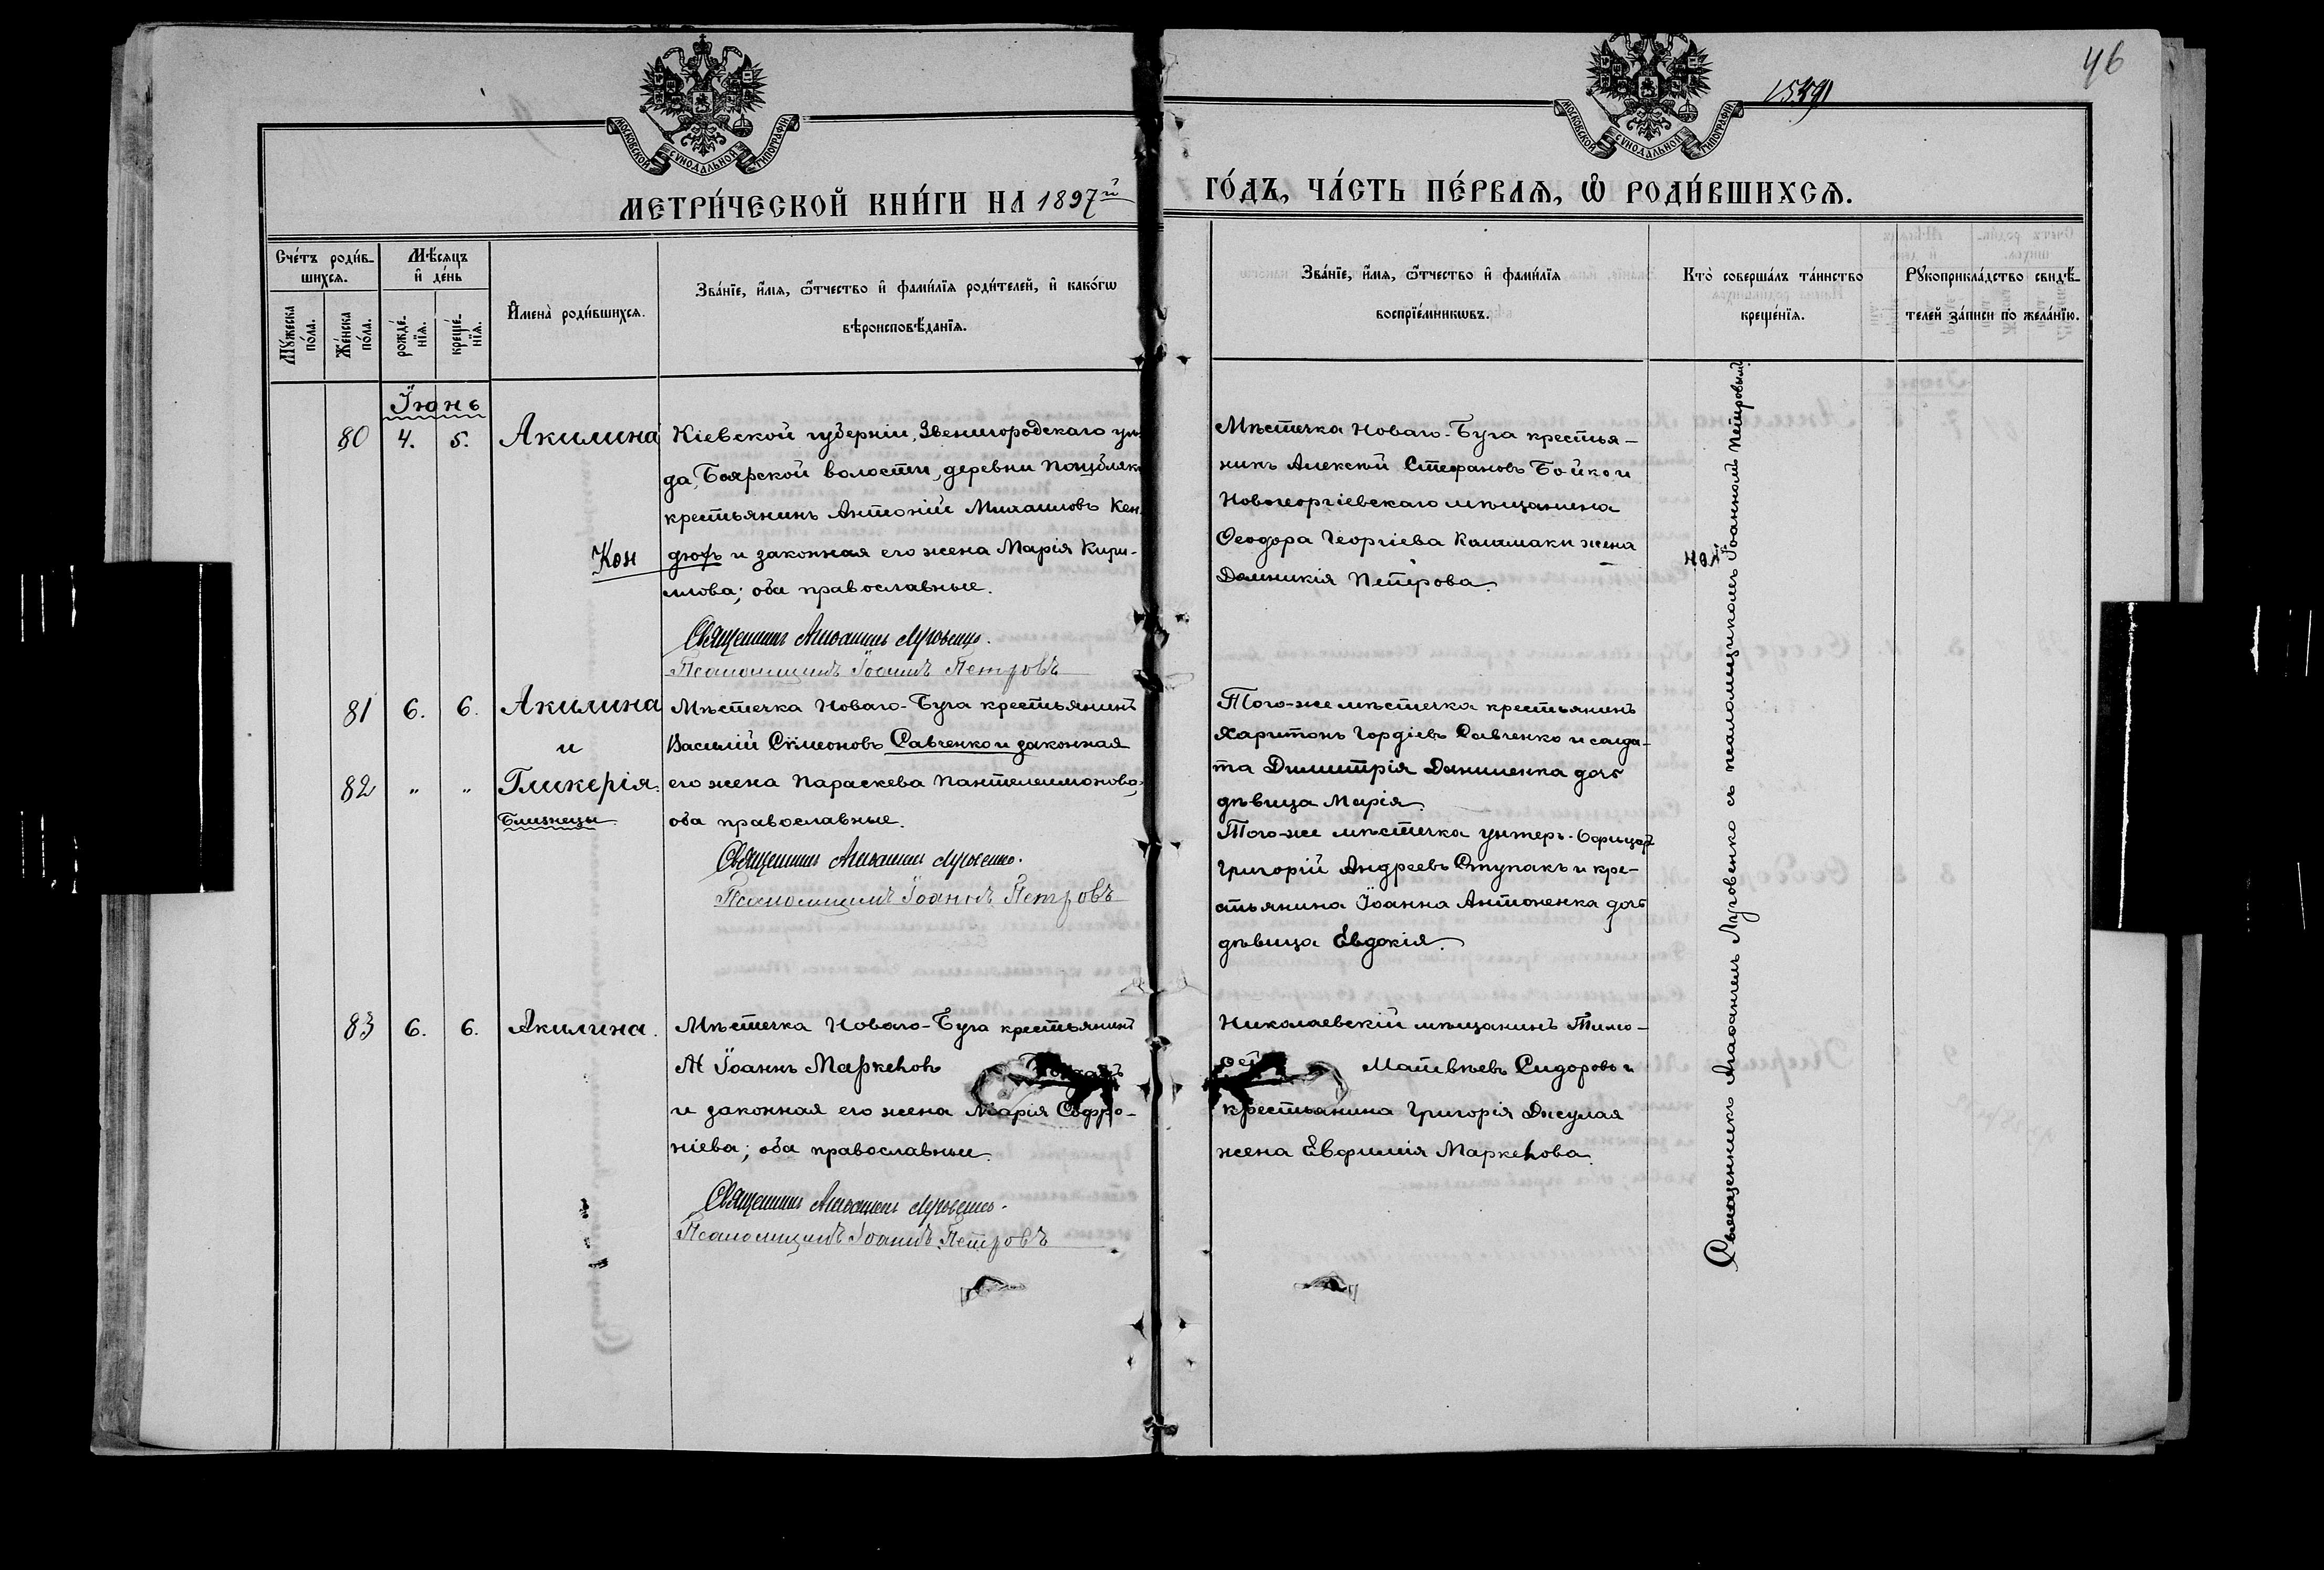 46
1559
МОСКОВСКОЙ СѴНОДАЛЬНОЙ ТИПОГРАФІИ
МОСКОВСКОЙ СѴНОДАЛЬНОЙ ТИПОГРАФІИ
МЕТРИ́ЧЕСКОЙ КНИ́ГИ НА 1897й
ГО́ДЪ, ЧА́СТЬ ПЕ́РВАѦ, Ѽ РОДИ́ВШИХСѦ.
Сче́тъ роди́в-
шихся.
Мꙋ́жеска
по́ла.
Же́нска
по́ла.
Мѣ́сяцъ
и҆ де́нь
рожде́-
нїя.
креще́-
нїя.
И҆мена̀ роди́вшихся.
Зва́нїе, и҆́мя, ѻ҆́тчество и҆ фами́лїя роди́телей, и҆ како́гѡ
вѣроисповѣ́данїя.
Зва́нїе, и҆́мя, ѻ҆́тчество и҆ фами́лїя
воспрїе́мникѡвъ.
Кто̀ соверша́лъ та́инство
креще́нїя.
Рꙋкоприкла́дство свидѣ́-
телей за́писи по жела́нїю.
Іюнь
80 4. 5. Акилина
Кіевской губерніи, Звенигородскаго уѣз-
да, Боярской волости, деревни
крестьянинъ Антоній Михаиловъ Кен-
Кон
дюхъ и законная его жена Марія Кири-
лова; оба православные.
Священникъ Агаѳангелъ Луговенко.
Псаломщикъ Іоаннъ Петровъ
Мѣстечка Новаго-Буга крестья-
нинъ Алексѣй Стефановъ Бойко и
Новогеоргіевскаго мѣщанина
Ѳеодора Георгіева Каламаки жена
Домникія Петрова.
81 6. 6. Акилина
и
82 " " Гликерія.
Близнецы
Мѣстечка Новаго-Буга крестьянинъ
Василій Сѵмеоновъ Савченко и законная
его жена Параскева Пантелеимонова;
оба православные.
Священникъ Агаѳангелъ Луговенко.
Псаломщикъ Іоаннъ Петровъ
Того-же мѣстечка крестьянинъ
Харитонъ Гордіевъ Савченко и солда-
та Димитрія Даниленка дочь
дѣвица Марія.
Того-же мѣстечка унтеръ-офицеръ
Григорій Андреевъ Ступакъ и кре-
стьянина Іоанна Антоненка дочь
дѣвица Евдокія.
83 6. 6. Акилина.
Мѣстечка Новаго-Буга крестьянинъ
Іоаннъ Маркеловъ
и законная его жена Марія Софро-
ніева; оба православные.
Священникъ Агаѳангелъ Луговенко.
Псаломщикъ Іоаннъ Петровъ
Николаевскій мѣщанинъ Тимо-
Матвѣевъ Сидоровъ и
крестьянина Григорія Джулая
жена Евфимія Маркелова.
Священникъ Агаѳангелъ Луговенко съ псаломщикомъ Іоанномъ Петровымъ